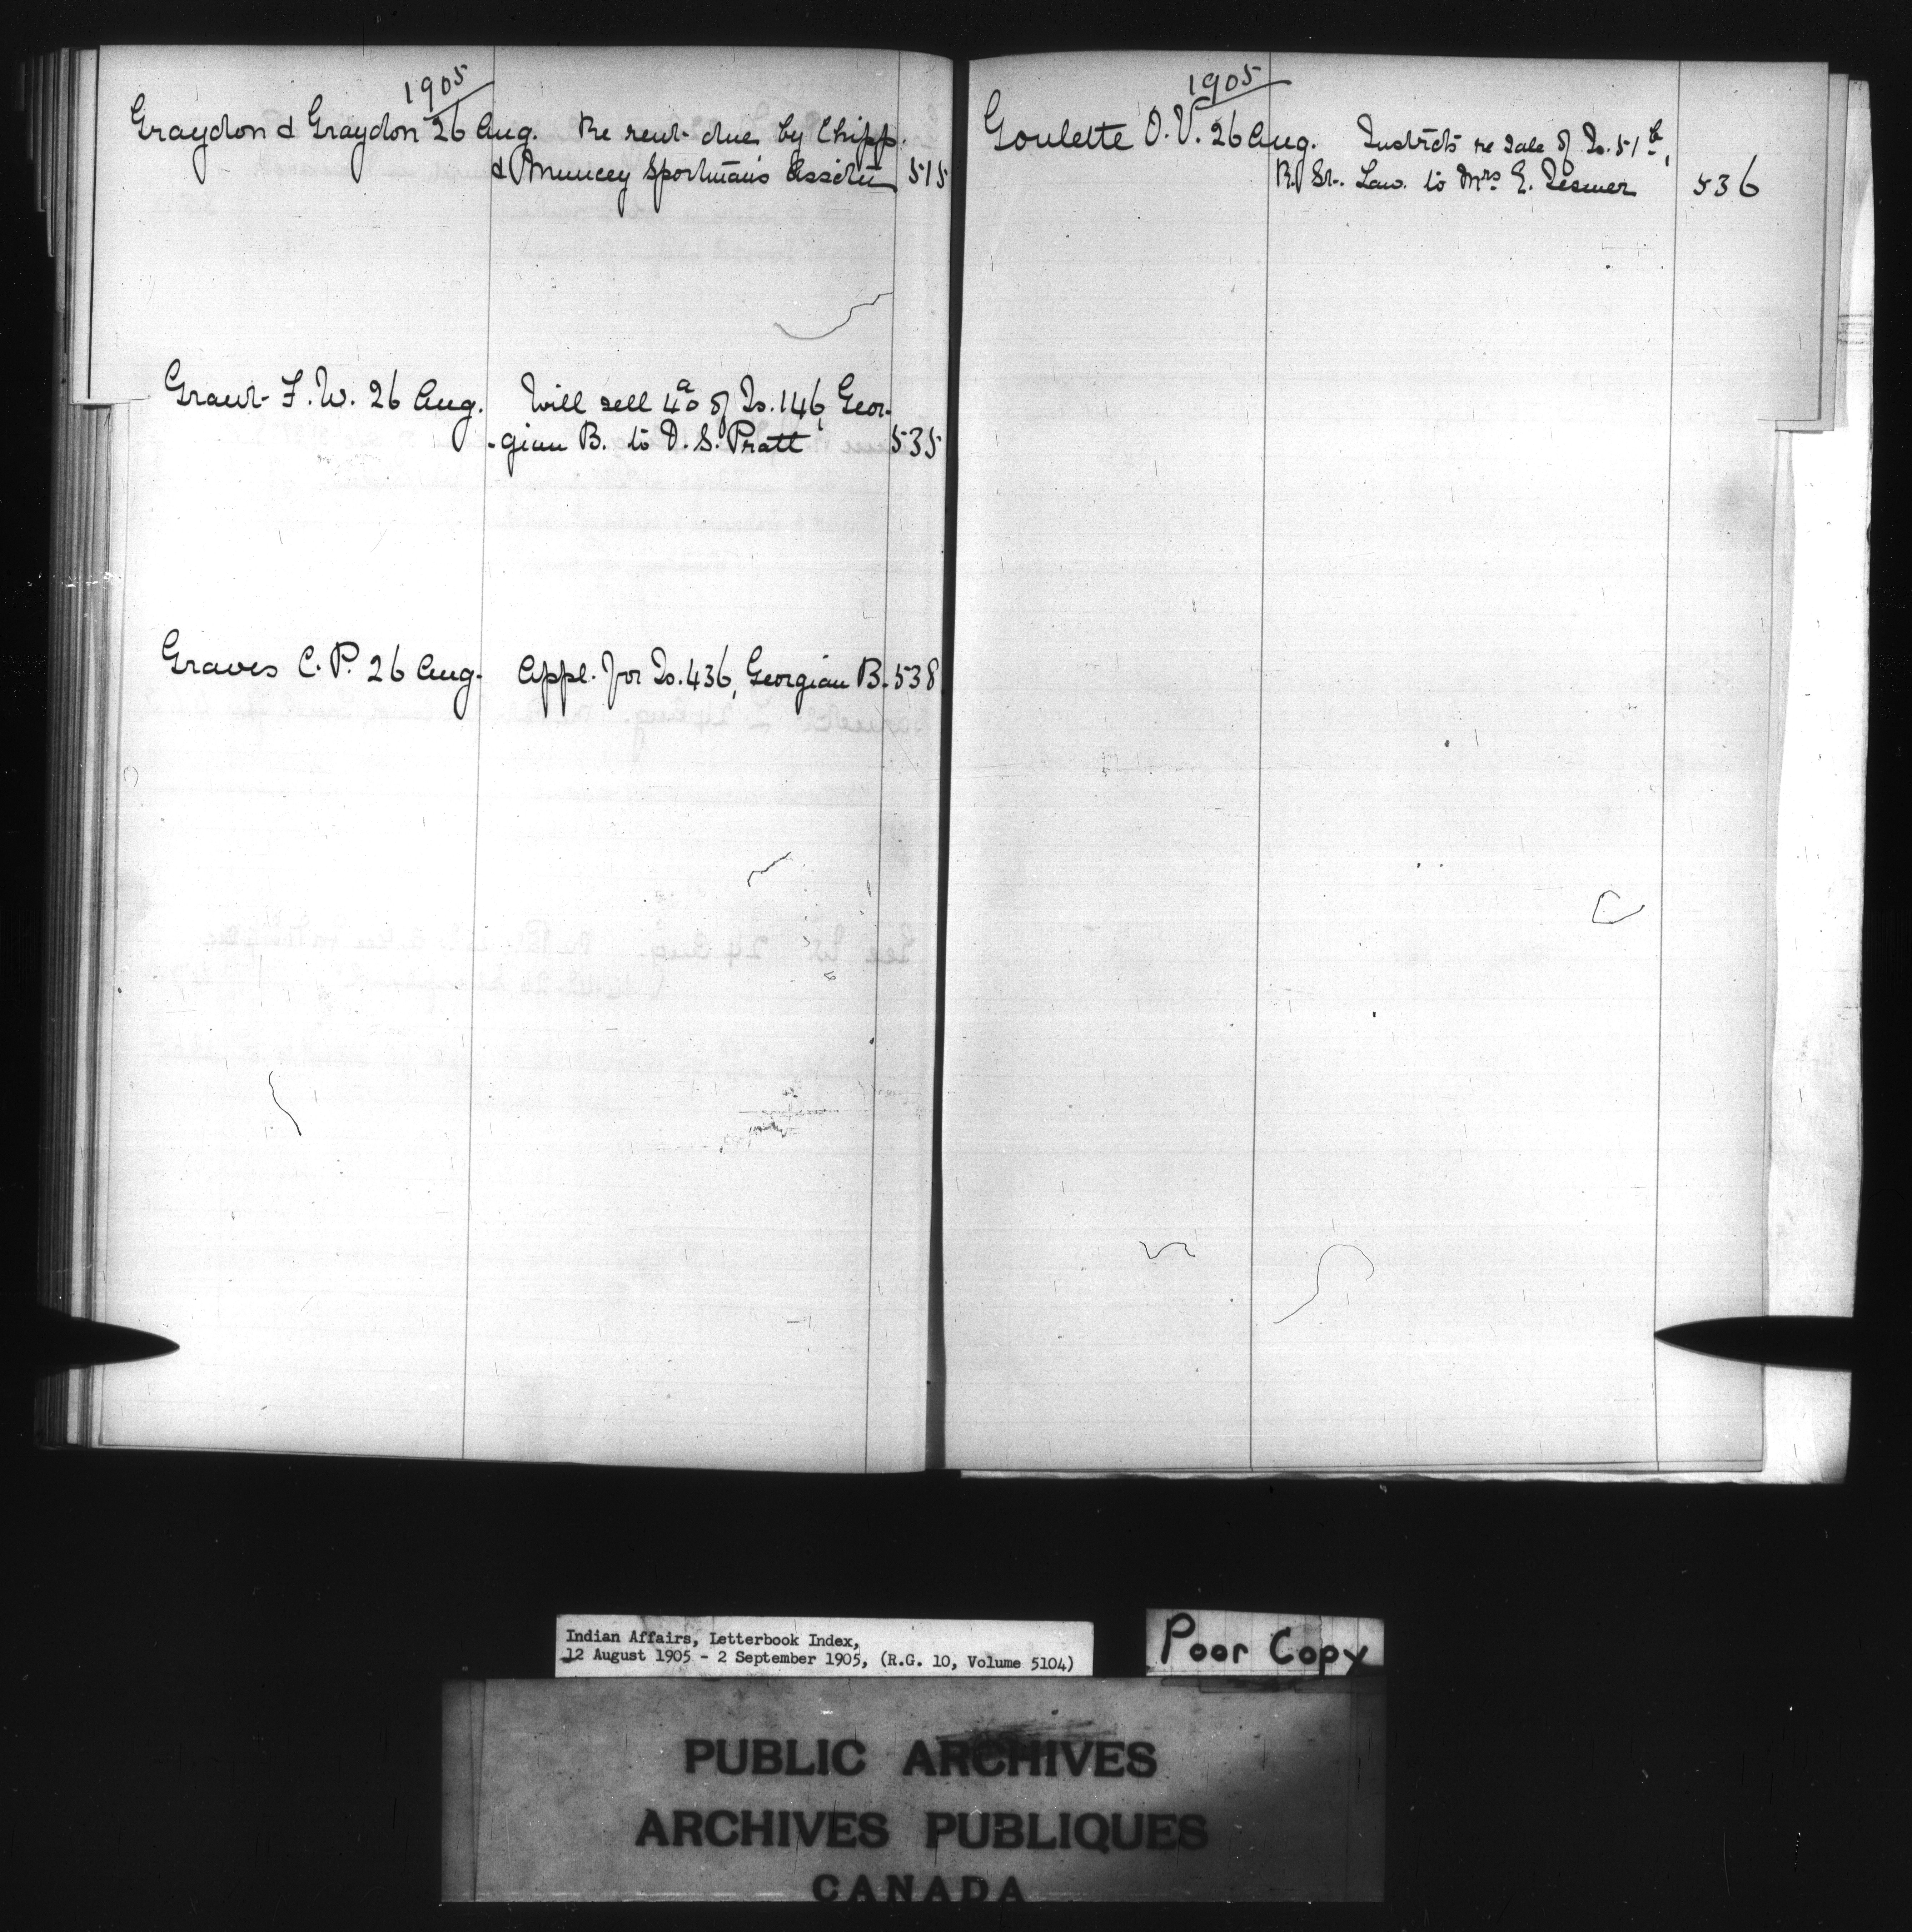 1905
Graydon & Graydon 26 Aug. Re rent due by Chipp.
& Muncey Sportman's Assoctn 515
Grant F. W. 26 Aug. Will sell 4a of Is. 146, Geor-
-gian B. to D. S. Pratt 535
Graves C. P. 26 Aug. Appl. for Is. 436, Georgian B. 538
1905
Goulette O. V. 26 Aug. Instrcts re sale of Is. 51b,
R. St. Law. to Mrs E. 536
Indian Affairs, Letterbook Index,
12 August 1905 - 2 September 1905, (R.G. 10, Volume 5104)
Poor Copy
PUBLIC ARCHIVES
ARCHIVES PUBLIQUES
CANADA